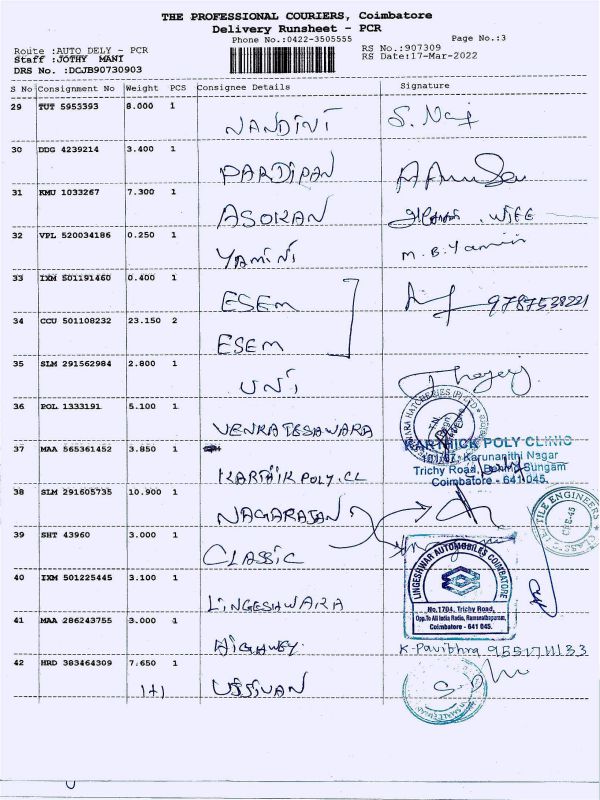 THE PROFESSIONAL COURIERS, Coimbatore
Delivery Runsheet - PCR
Phone No.:0422-3505555
Page No.:3
Route :AUTO DELY - PCR
RS No.:907309
Staff :JOTHY MANI
RS Date:17-Mar-2022
DRS No. :DCJB90730903
S No Consignment No Weight PCS Consignee Details Signature
29 TUT 5953393 8.000 1 NANDINI
30 DDG 4239214 3.400 1 PARDIPAN
31 KMU 1033267 7.300 1 ASOKAN WIFE
32 VPL 520034186 0.250 1 YAMINI M.B.Yamini
33 IXM 501191460 0.400 1 ESEM 9787538221
34 CCU 501108232 23.150 2 ESEM
35 SLM 291562984 2.800 1 UNI
36 POL 1333191 5.100 1 VENKATESHWARA
37 MAA 565361452 3.850 1 KARTHIK POLY.CL
KARTHICK POLY CLINIC
Karunanithi Nagar
Trichy Road, Behind Sungam
Coimbatore - 641 045.
38 SLM 291605735 10.900 1 NAGARAJAN
39 SHT 43960 3.000 1 CLASSIC
40 IXM 501225445 3.100 1 LINGESHWARA
LINGESHWAR AUTOMOBILES COIMBATORE
No.1704, Trichy Road,
Opp.To All India Radio, Ramanathapuram,
Coimbatore - 641 045.
41 MAA 286243755 3.000 1 HIGHWEY K-Pavibhra 9551711133
42 HRD 383464309 7.650 1 USSIVAN
1+1